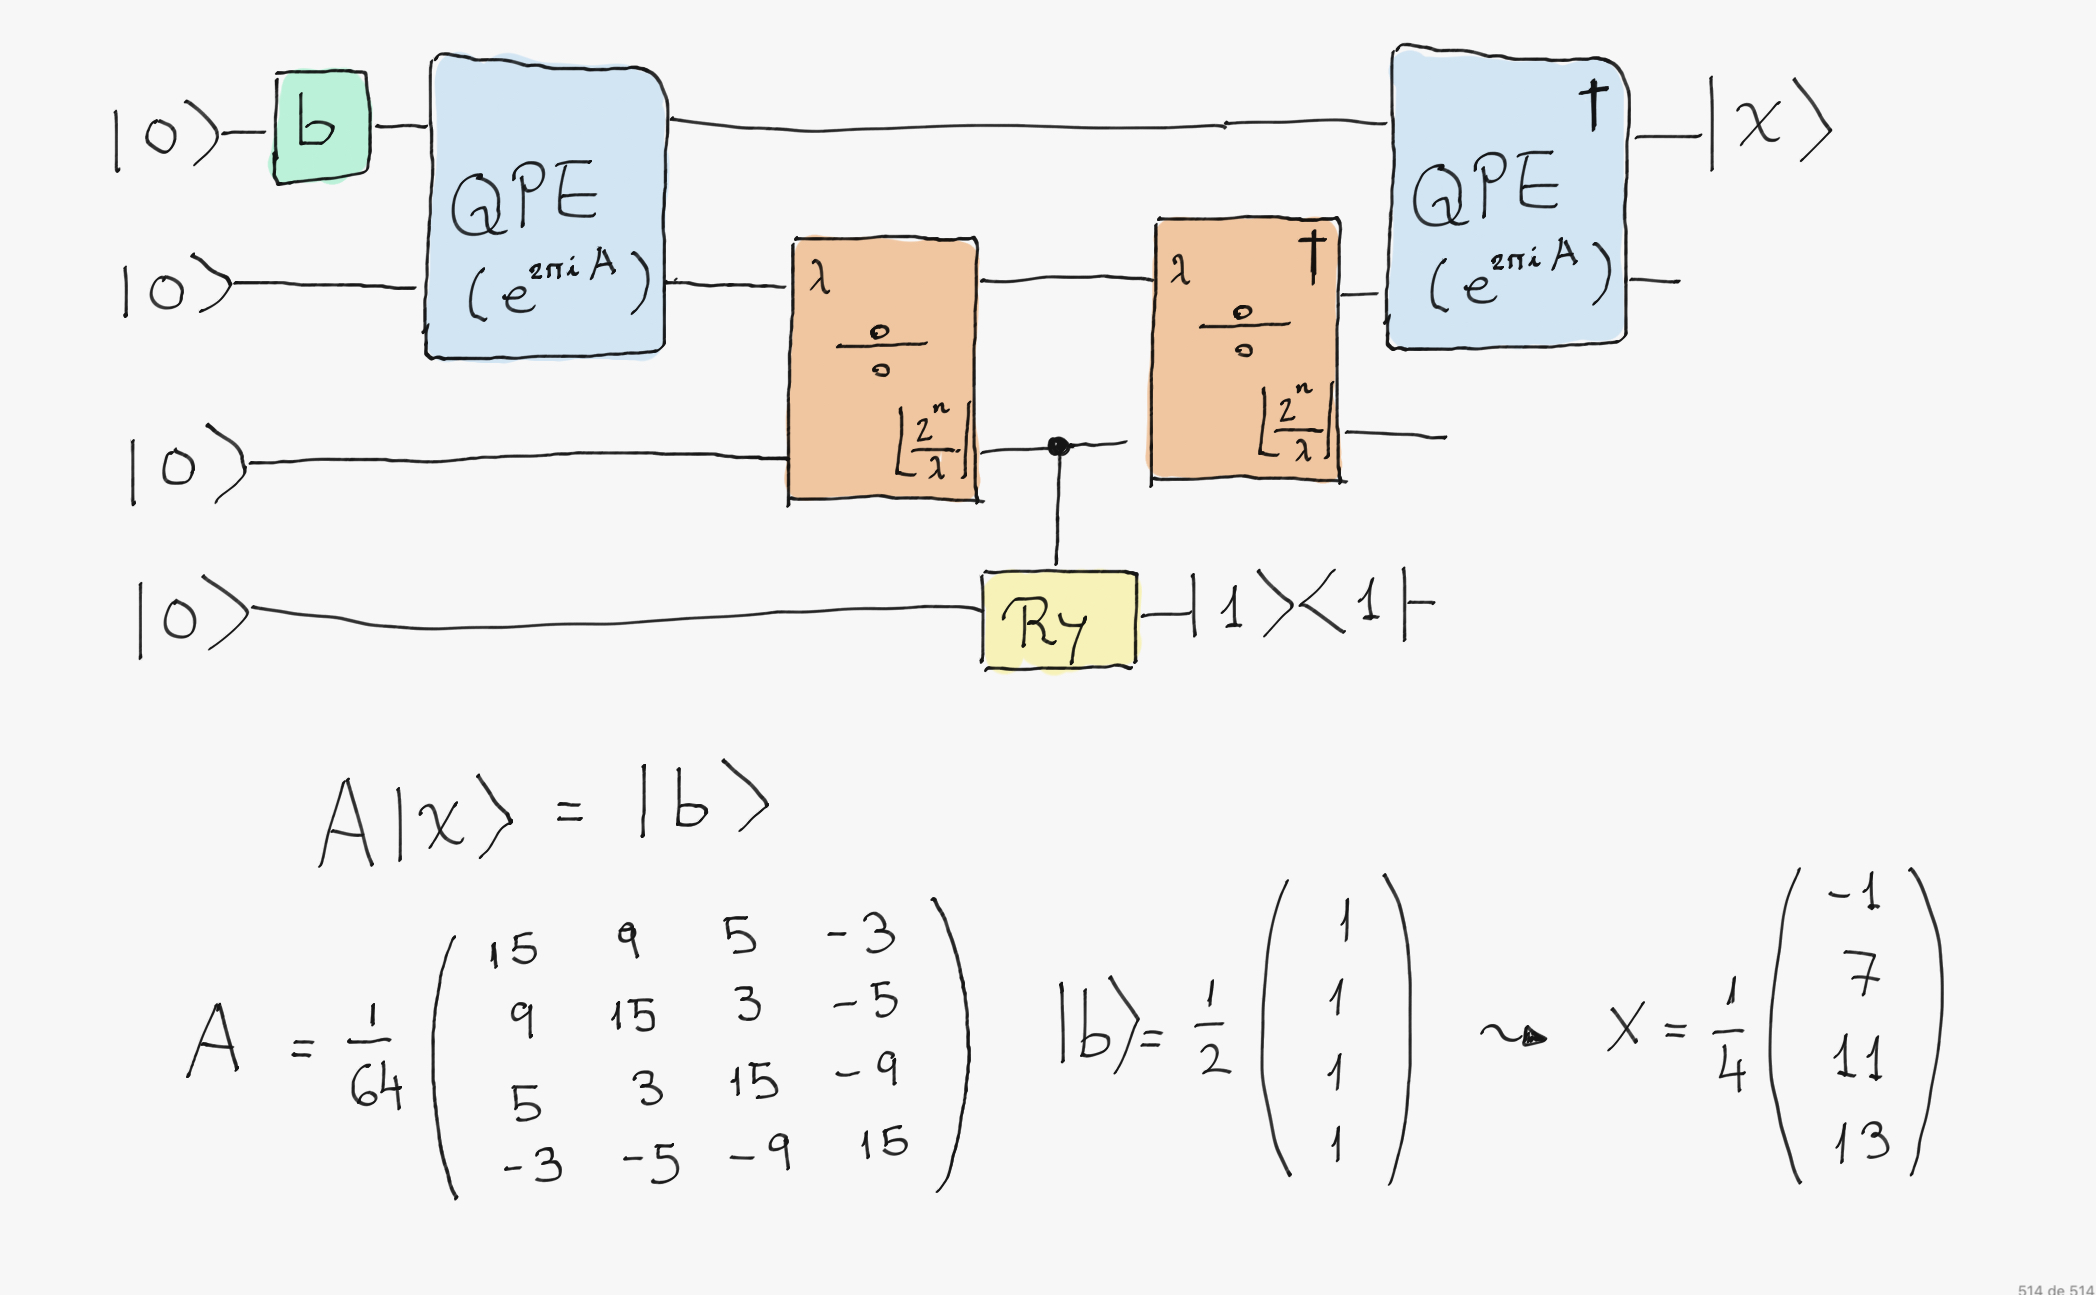 |0⟩ b QPE (e^{2πiA}) † QPE (e^{2πiA}) |x⟩
|0⟩ λ ÷ ⌊2^n/λ⌋ λ † ÷ ⌊2^n/λ⌋
|0⟩
|0⟩ Ry |1⟩⟨1|
A|x⟩ = |b⟩
A = 1/64 ( 15 9 5 -3
9 15 3 -5
5 3 15 -9
-3 -5 -9 15 )
|b⟩ = 1/2 ( 1
1
1
1 )
⇝ x = 1/4 ( -1
7
11
13 )
514 de 514